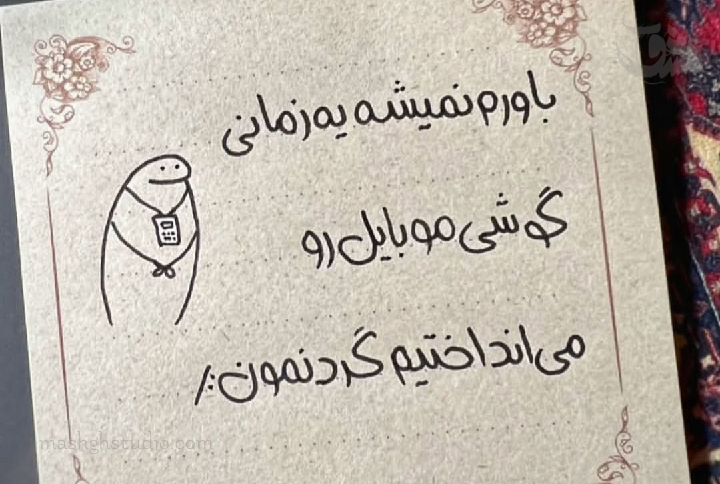 باورم نمیشه یه زمانی
گوشی موبایل رو
می‌انداختیم گردنمون:/
mashghstudio.com